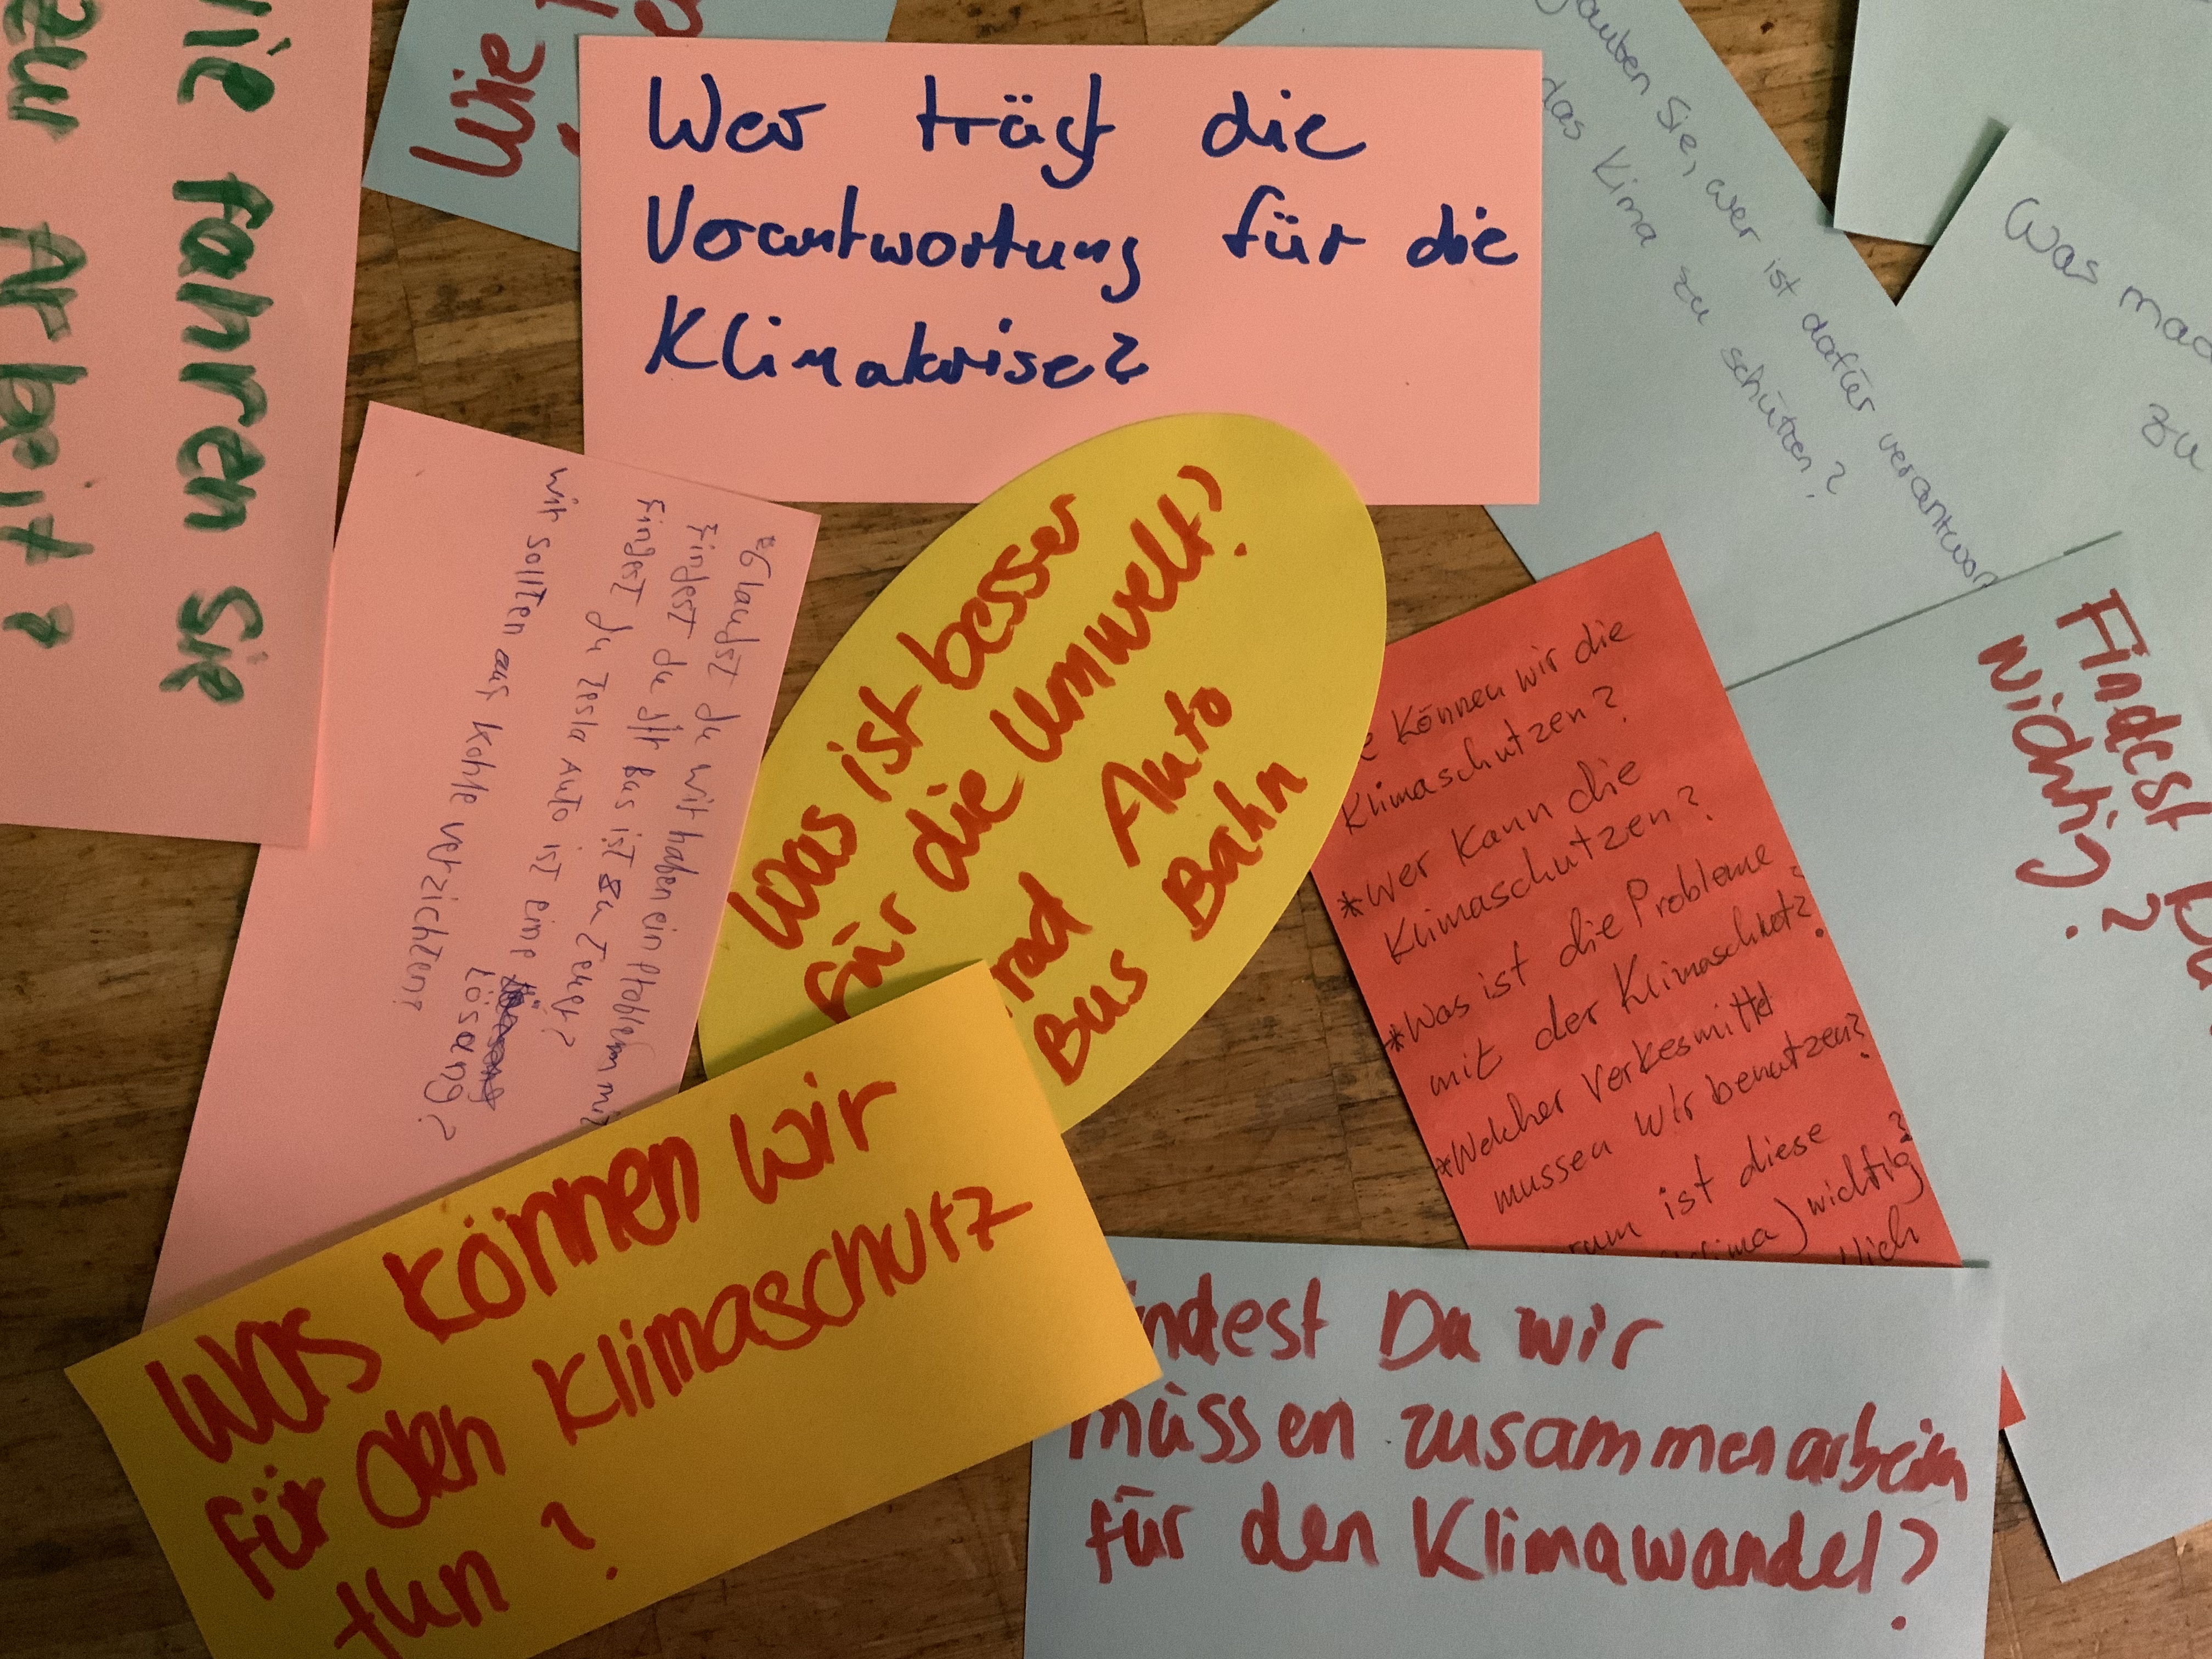 Wie
wie fahren Sie
zur Arbeit?
Wer trägt die
Verantwortung für die
Klimakrise?
auben Sie, wer ist dafür verantwor
das Klima zu schützen?
Was mac
zu
*Glaubst du wir haben ein Problem mit
Findest du dIt Bus ist zu Teuer?
Findest du Tesla Auto ist eine
Lösung?
wir sollten auf Kohle verzichten?
Was ist besser
für die Umwelt?
rad Auto
Bus Bahn
e Können wir die
Klimaschutzen?
*Wer Kann die
Klimaschutzen?
*Was ist die Probleme
mit der Klimaschutz?
*Welcher Verkesmittel
mussen wir benutzen?
rum ist diese
lima) wichtig?
lich
Findest Du
wichtig?
Was können wir
für den Klimaschutz
tun?
indest Du wir
müssen zusammenarbeiten
für den Klimawandel?